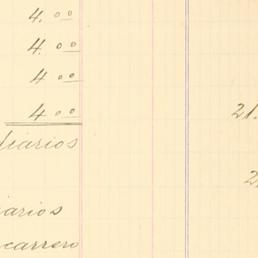 4.00
4.00
4.00
4.00
21.
diarios
2
iarios
carrero